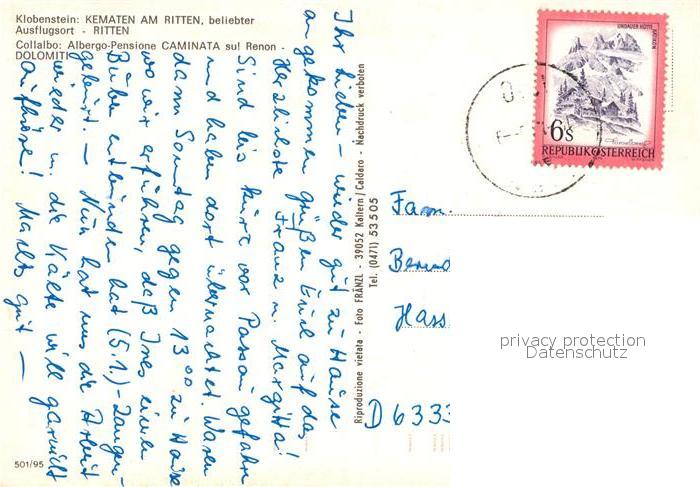 Klobenstein: KEMATEN AM RITTEN, beliebter
Ausflugsort - RITTEN
Collalbo: Albergo-Pensione CAMINATA sul Renon -
DOLOMITI
Ihr Lieben – wieder gut zu Hause
angekommen grüßen Euch auf das
Herzlichste Franz u. Margitta!
Sind bis kurz vor Passau gefahren
und haben dort übernachtet. Waren
dann Sonntag gegen 13 00 zu Hause
wo wir erfuhren, daß Ines einen
Buben entbunden hat (5.1.) – Zangen-
geburt. – Nun hat uns die Arbeit
wieder u. die Kälte will garnicht
aufhören! Machts gut –
Riproduzione vietata - Foto FRÄNZL - 39052 Kaltern/Caldaro - Nachdruck verboten
Tel. (0471) 53505
LINDAUER HÜTTE
RÄTIKON
6 S
REPUBLIK ÖSTERREICH
Fam.
Hass
D 6333
privacy protection
Datenschutz
501/95